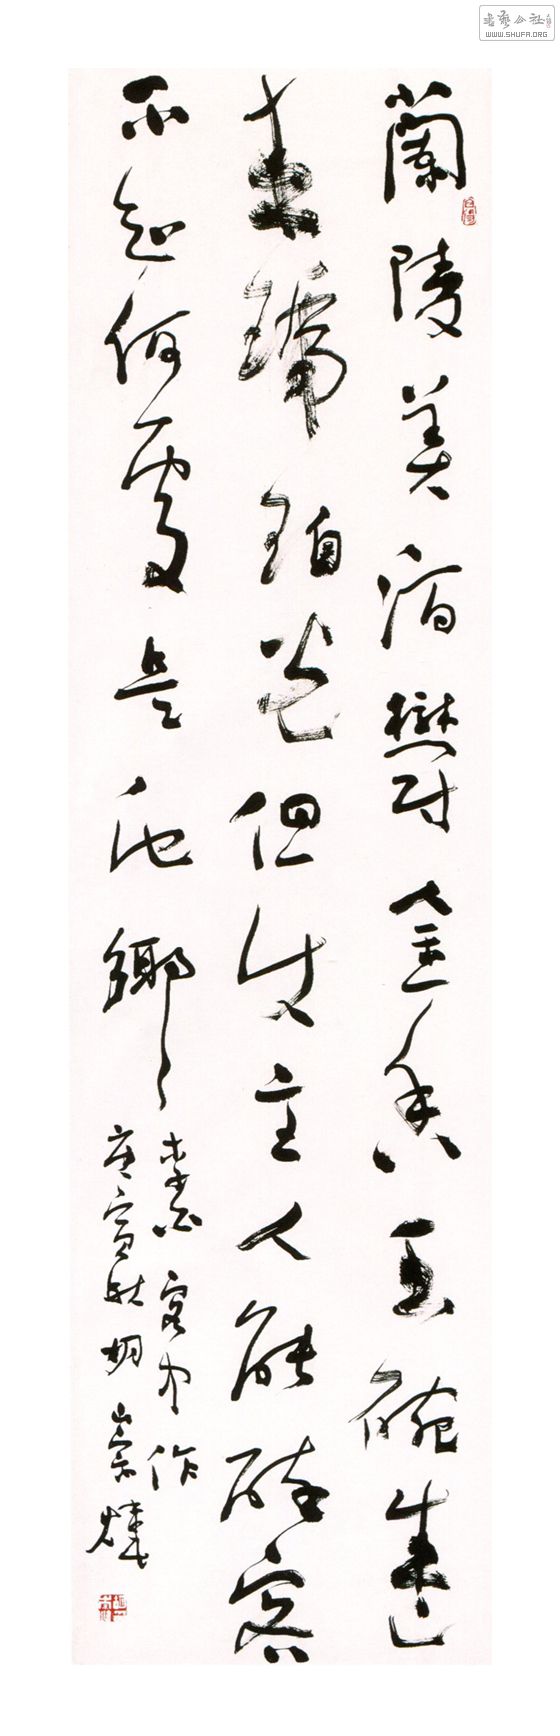 書藝公社
WWW.SHUFA.ORG
蘭陵美酒鬱金香玉碗盛
來琥珀光但使主人能醉客
不知何處是他鄉
李白客中作
庚寅秋胡崇煒